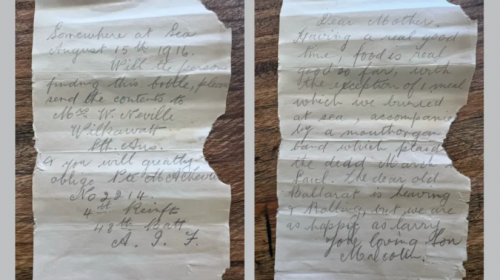 Somewhere at Sea
August 15th 1916.
Will the person
finding this bottle, please
send the contents to
Mrs W. Neville
Wilkawatt
Sth. Aus.
& you will greatly
oblige Pte M. A. Neville
No 2914.
4th Reinfts
48th Batt
A. I. F.
Dear Mother.
Having a real good
time, food is real
good so far, with
the exception of 1 meal
which we buried
at sea, accompanied
by a mouthorgan
band which plaid
the dead March
Saul. The dear old
Ballarat is heaving
& Rolling, but we are
as happy as larry
Your loving Son
Malcolm.